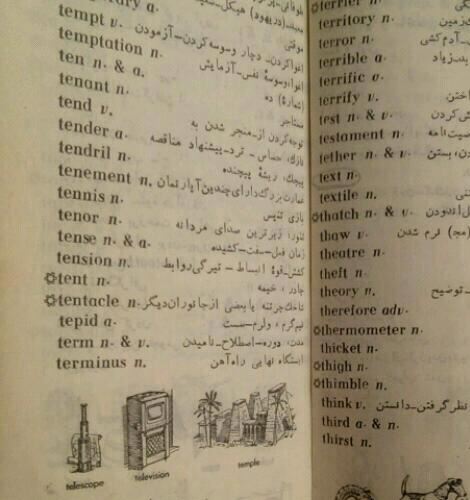 tempt v. اغوا کردن - دچار وسوسه کردن - آزمودن
temptation n. اغوا، وسوسهٔ نفس - آزمایش
ten n. & a. (شمارهٔ) ده
tenant n. مستأجر
tend v. توجه کردن از - منجر شدن به
tender a. نازک، حساس - ترد - پیشنهاد مناقصه
tendril n. پیچک، ریشهٔ پیچنده
tenement n. عمارت بزرگ دارای چندین آپارتمان
tennis n. بازی تنیس
tenor n. تنور، زیرترین صدای مردانه
tense n. & a. زمان فعل - سفت - کشیده
tension n. کشش - قوهٔ انبساط - تیرگی روابط
tent n. چادر، خیمه
tentacle n. شاخک حیوانات یا بعضی از جانوران دیگر
tepid a. نیم گرم، ولرم - سست
term n. & v. مدت، دوره - اصطلاح - نامیدن
terminus n. ایستگاه نهایی راه آهن
telescope
television
temple
terrier n.
territory n.
terror n.
terrible a.
terrific a.
terrify v.
test n. & v.
testament n.
tether n. & v.
text n.
textile n.
thatch n. & v.
thaw v.
theatre n.
theft n.
theory n. توضیح
therefore adv.
thermometer n.
thicket n.
thigh n.
thimble n.
think v. نظر گرفتن - دانستن
third a. & n.
thirst n.